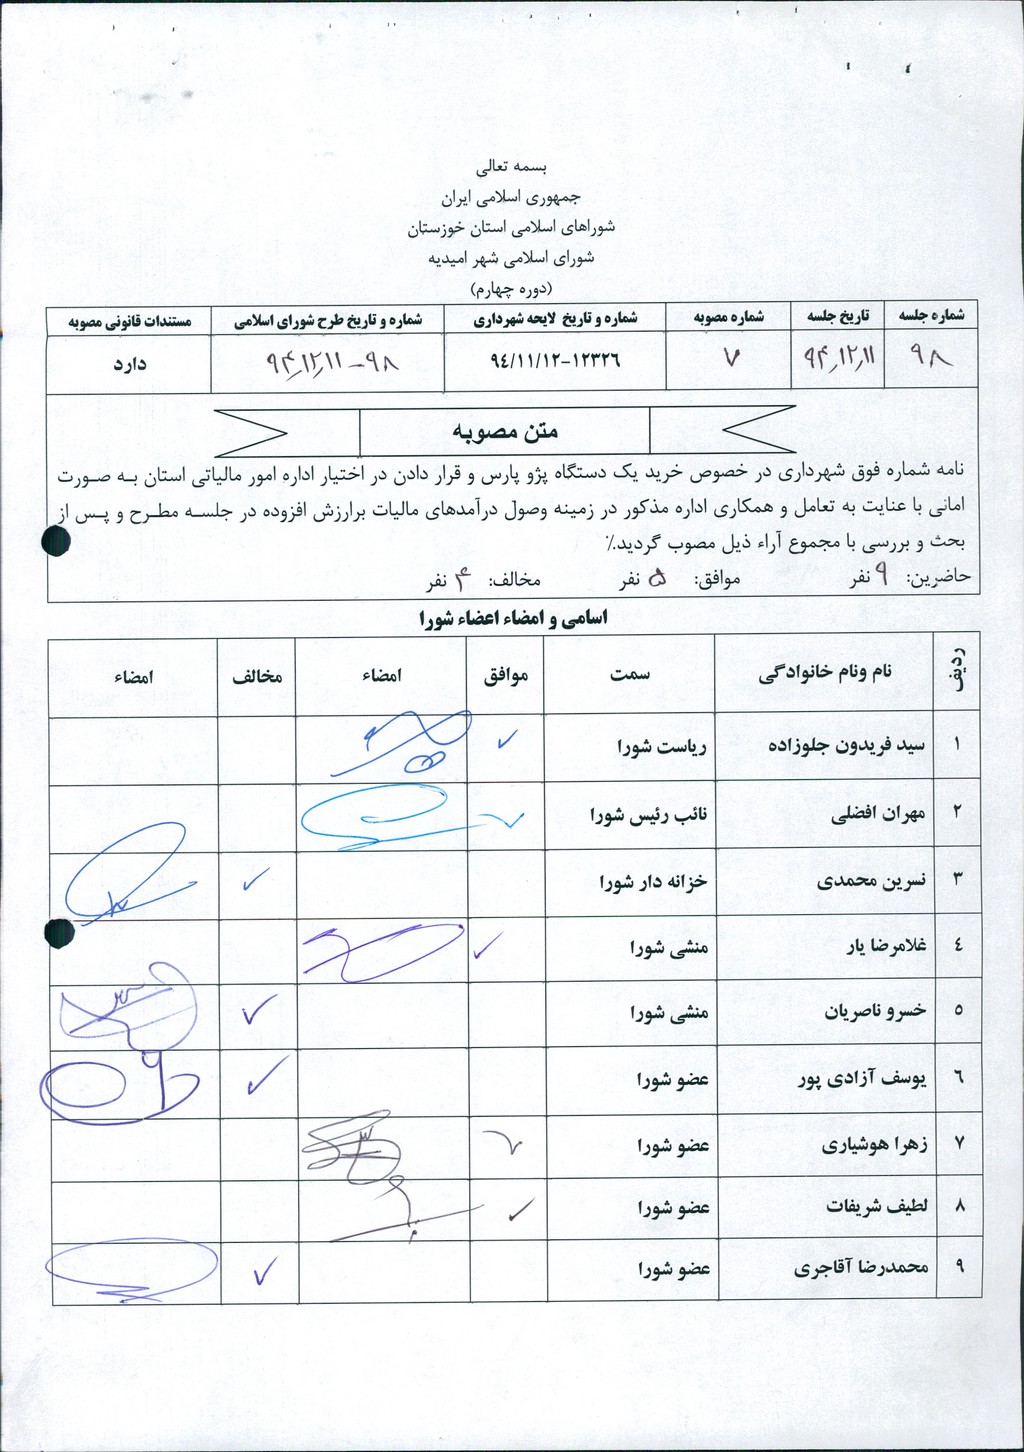 بسمه تعالی
جمهوری اسلامی ایران
شوراهای اسلامی استان خوزستان
شورای اسلامی شهر امیدیه
(دوره چهارم)
شماره جلسه تاریخ جلسه شماره مصوبه شماره و تاریخ لایحه شهرداری شماره و تاریخ طرح شورای اسلامی مستندات قانونی مصوبه
۹۸ ۹۴،۱۲،۱۱ ۷ ۹٤/۱۱/۱۲-۱۲۳۲٦ ۹۸-۹۴،۱۲،۱۱ دارد
متن مصوبه
نامه شماره فوق شهرداری در خصوص خرید یک دستگاه پژو پارس و قرار دادن در اختیار اداره امور مالیاتی استان به صورت
امانی با عنایت به تعامل و همکاری اداره مذکور در زمینه وصول درآمدهای مالیات برارزش افزوده در جلسه مطرح و پس از
بحث و بررسی با مجموع آراء ذیل مصوب گردید.٪
حاضرین: ۹ نفر موافق: ۵ نفر مخالف: ۴ نفر
اسامی و امضاء اعضاء شورا
ردیف نام ونام خانوادگی سمت موافق امضاء مخالف امضاء
۱ سید فریدون جلوزاده ریاست شورا ✓
۲ مهران افضلی نائب رئیس شورا ✓
۳ نسرین محمدی خزانه دار شورا ✓
٤ غلامرضا یار منشی شورا ✓
٥ خسرو ناصریان منشی شورا ✓
٦ یوسف آزادی پور عضو شورا ✓
۷ زهرا هوشیاری عضو شورا ✓
۸ لطیف شریفات عضو شورا ✓
۹ محمدرضا آقاجری عضو شورا ✓